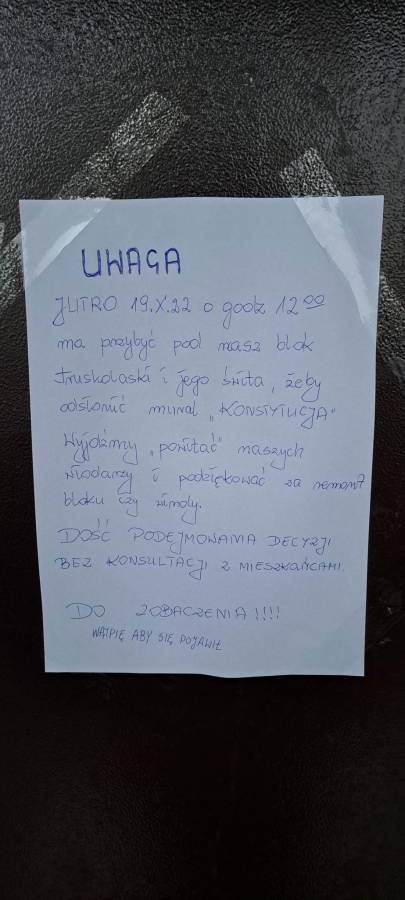 UWAGA
JUTRO 19.X.22 o godz 12⁰⁰
ma przybyć pod nasz blok
Truskolaski i jego świta, żeby
odsłonić mural „KONSTYTUCJA"
Wyjdźmy „powitać" naszych
włodarzy i podziękować za remont
bloku czy windy.
DOŚĆ PODEJMOWANIA DECYZJI
BEZ KONSULTACJI Z MIESZKAŃCAMI.
DO ZOBACZENIA!!!!
WĄTPIĘ ABY SIĘ POJAWIŁ